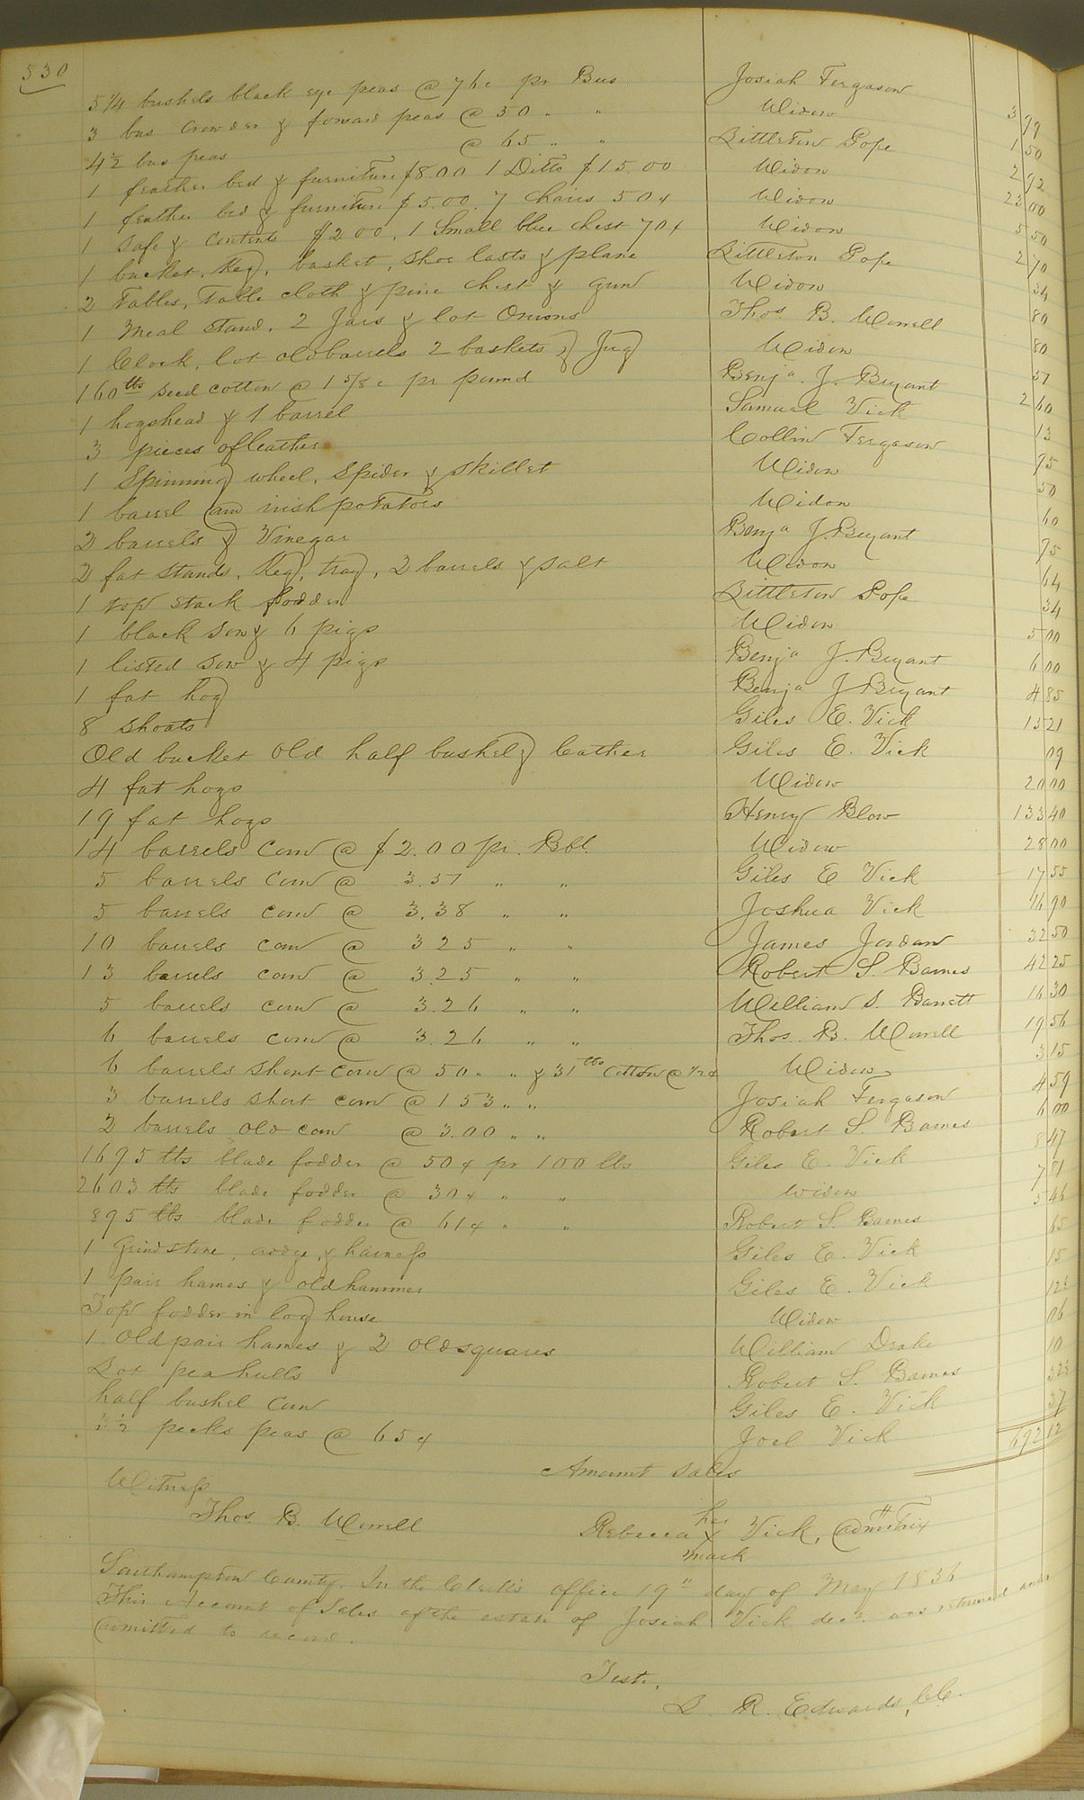 530
5 1/4 bushels black eye peas @ 76c pr Bus Josiah Fergason 3 99
3 bus Crowder & forward peas @ 50 " " Widow 1 50
4 1/2 bus peas @ 65 " " Littleton Pope 2 92
1 feather bed & furniture $8.00 1 Ditto $15.00 Widow 23 00
1 feather bed & furniture $5.00. 7 Chairs 50¢ Widow 5 50
1 Safe & Contents $2 00, 1 Small blue chest 70¢ Widow 2 70
1 bucket, Keg, basket, shoe lasts & plane Littleton Pope 34
2 Tables, Table cloth & pine chest & Gun Widow 80
1 Meal stand, 2 Jars & lot Onions Thos. B. Worrell 80
1 Clock, lot old barrels 2 baskets & Jug Widow 51
160 lbs seed cotton @ 1 5/8 c pr pound Benja. J. Bryant 2 60
1 hogshead & 1 barrel Samuel Vick 13
3 pieces of leather Collin Fergason 75
1 Spinning wheel, Spider & skillet Widow 50
1 barrel and irish potatoes Widow 60
2 barrels & Vinegar Benja J. Bryant 75
2 fat stands, Keg, tray, 2 barrels & salt Widow 64
1 top stack fodder Littleton Pope 34
1 black sow & 6 pigs Widow 5 00
1 listed sow & 4 pigs Benja J. Bryant 6 00
1 fat hog Benja J Bryant 4 85
8 shoats Giles E. Vick 13 21
Old bucket old half bushel & leather Giles E. Vick 09
4 fat hogs Widow 20 00
19 fat hogs Henry Blow 133 40
14 barrels corn @ $2.00 pr. Bbl. Widow 28 00
5 barrels corn @ 3.51 " " Giles E Vick 17 55
5 barrels corn @ 3.38 " " Joshua Vick 16 90
10 barrels corn @ 3 25 " " James Jordan 32 50
13 barrels corn @ 3.25 " " Robert S. Barnes 42 25
5 barrels corn @ 3.26 " " William S. Barrett 16 30
6 barrels corn @ 3.26 " " Thos. B. Worrell 19 56
6 barrels short corn @ 50 " " & 31 lbs Cotton @ Widow 3 15
3 barrels short corn @ 1 53 " " Josiah Fergason 4 59
2 barrels old corn @ 3.00 " " Robert S Barnes 6 00
1695 lbs blade fodder @ 50¢ pr 100 lbs Giles E. Vick 8 47
2603 lbs blade fodder @ 30¢ " " Widow 7 81
895 lbs blade fodder @ 61¢ " " Robert S. Barnes 5 46
1 Grindstone, wedge, & harness Giles E. Vick 65
1 pair hames & old hammer Giles E. Vick 15
Top fodder in log house Widow 12½
1 Old pair hames & 2 old squares William Drake 06
Lot pea hulls Robert S. Barnes 10
half bushel corn Giles E. Vick
3 1/2 pecks peas @ 65¢ Joel Vick 37
Amount sales 692 12
Witness
Thos. B. Worrell
her
Rebecca X Vick, Admtrix
mark
Southampton County. In the Clerk's office 19" day of May 1836
This Account of Sales of the estate of Josiah Vick decd. was returned and
admitted to record.
Teste,
L. R. Edwards, C.C.